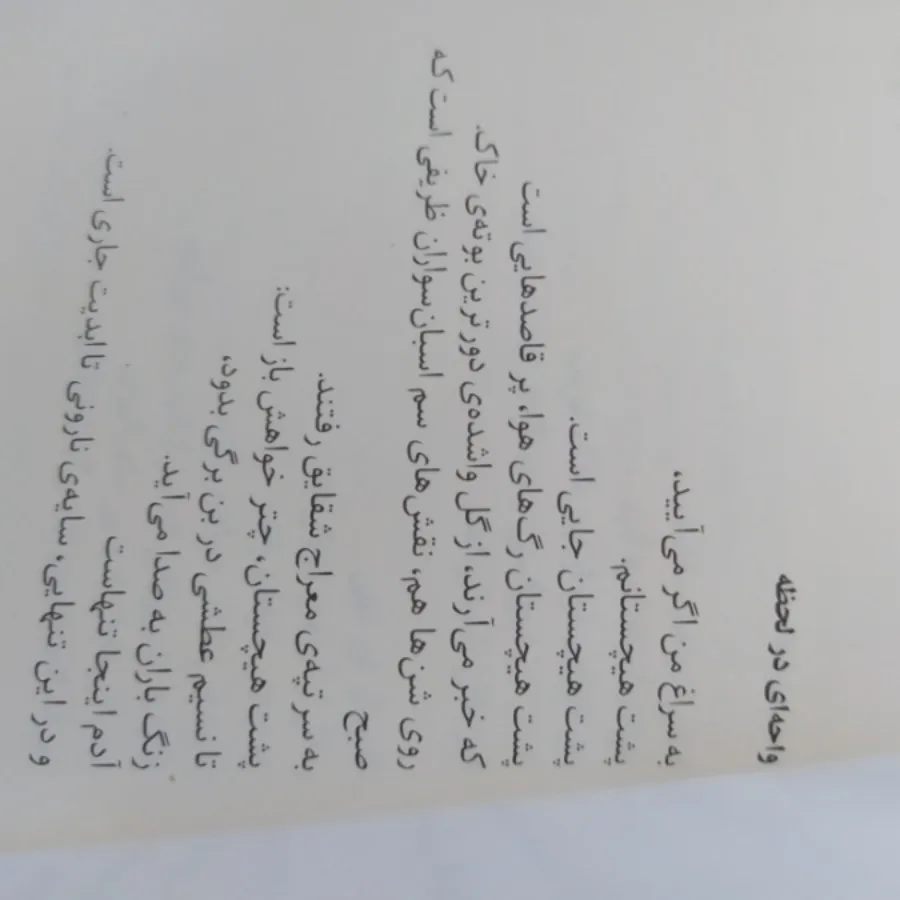 واحه‌ای در لحظه
به سراغ من اگر می‌آیید،
پشت هیچستانم.
پشت هیچستان جایی است.
پشت هیچستان رگ‌های هوا، پر قاصدهایی است
که خبر می‌آرند، از گل واشده‌ی دورترین بوته‌ی خاک.
روی شن‌ها هم، نقش‌های سم اسبان سواران ظریفی است که
صبح
به سر تپه‌ی معراج شقایق رفتند.
پشت هیچستان، چتر خواهش باز است:
تا نسیم عطشی در بن برگی بدود،
زنگ باران به صدا می‌آید.
آدم اینجا تنهاست
و در این تنهایی، سایه‌ی نارونی تا ابدیت جاری است.